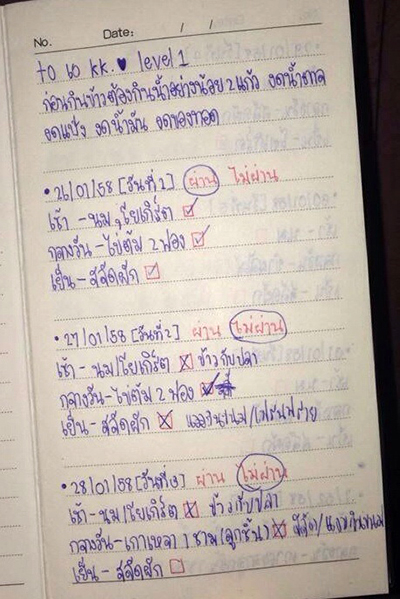 No. Date: / /
to 40 kk. ♥ level 1
ก่อนกินข้าวต้องกินน้ำอย่างน้อย 2 แก้ว งดน้ำตาล
งดแป้ง งดน้ำมัน งดของทอด
• 26/01/58 [วันที่ 1] ผ่าน ไม่ผ่าน
เช้า - นม, โยเกิร์ต ☑
กลางวัน - ไข่ต้ม 2 ฟอง ☑
เย็น - สลัดผัก ☑
• 27/01/58 [วันที่ 2] ผ่าน ไม่ผ่าน
เช้า - นม/โยเกิร์ต ☒ ข้าวกับปลา
กลางวัน - ไข่ต้ม 2 ฟอง ☑
เย็น - สลัดผัก ☒ แอบกินขนม/เฟรนฟราย
• 28/01/58 [วันที่ 3] ผ่าน ไม่ผ่าน
เช้า - นม/โยเกิร์ต ☒ ข้าวกับปลา
กลางวัน - เกาเหลา 1 ชาม (ลูกชิ้น) ☒ สลัด/แอบกินขนม
เย็น - สลัดผัก ☐